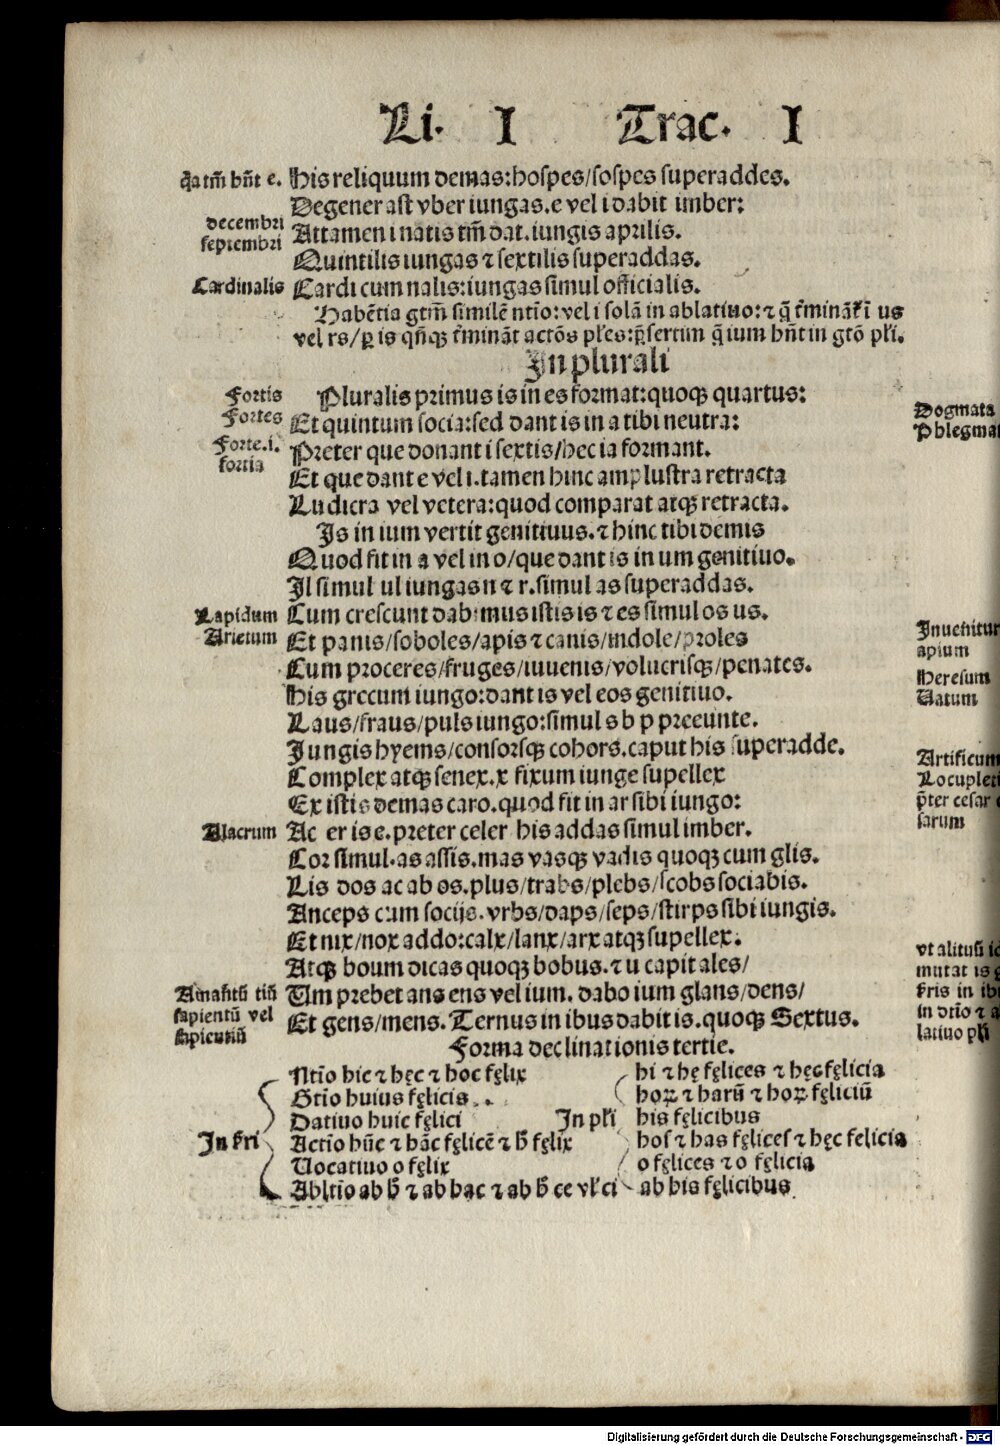 Li. I Trac. I
q̄a tm̄ hn̄t e. His reliquum demas:hospes/sospes superaddes.
Degener ast vber iungas.e vel i dabit imber:
decembri
septembri Attamen i natis tm̄ dat.iungis aprilis.
Quintilis iungas ⁊ sextilis superaddas.
Cardinalis Cardi cum nalis:iungas simul officialis.
Habētia gtm̄ similē ntīo:vel i solā in ablatiuo:⁊ q̄ t̄mināt̄ī us
vel rs/ꝑ is qn̄qꝫ t̄mināt actōs pl̄es:p̄sertim q̄ ium hn̄t in gtō pl̄i.
In plurali
Fortis Pluralis primus is in̄ es format:quoqꝫ quartus:
Fortes Et quintum socia:sed dant is in a tibi neutra:
Forte.i.
fortia Preter que donant i sextis/hec ia formant.
Et que dant e vel i.tamen hinc amplustra retracta
Ludicra vel vetera:quod comparat atqꝫ retracta.
Is in ium vertit genitiuus.⁊ hinc tibi demis
Quod fit in a vel in o/que dant is in um genitiuo.
Il simul ul iungas n ⁊ r.simul as superaddas.
Lapidum Cum crescunt dabimus istis is ⁊ es simul os us.
Arietum Et panis/soboles/apis ⁊ canis/indole/proles
Cum proceres/fruges/iuuenis/volucrisqꝫ/penates.
His grecum iungo:dant is vel eos genitiuo.
Laus/fraus/puls iungo:simul s b p preeunte.
Iungis hyems/consorsqꝫ cohors.caput his superadde.
Complex atqꝫ senex.x fixum iunge supellex
Ex istis demas caro.quod fit in ar sibi iungo:
Alacrum Ac er is e.preter celer his addas simul imber.
Cor simul.as assis.mas vasqꝫ vadis quoqꝫ cum glis.
Lis dos ac ab os.plus/trabs/plebs/scobs sociabis.
Anceps cum socijs.vrbs/daps/seps/stirps sibi iungis.
Et nix/nox addo:calx/lanx/arx atqꝫ supellex.
Atqꝫ boum dicas quoqꝫ bobus.⁊ u capit ales/
Amantū tiū Um prebet ans ens vel ium. dabo ium glans/dens/
sapientū vel
sapientiū Et gens/mens. Ternus in ibus dabit is.quoqꝫ Sextus.
Forma declinationis tertie.
Ntīo hic ⁊ hęc ⁊ hoc fęlix
Gtīo huius fęlicis
Datiuo huic fęlici
In s̄ri Actīo hūc ⁊ hāc fęlicē ⁊ h̄ fęlix
Uocatiuo o fęlix
Abltīo ab h̄ ⁊ ab hac ⁊ ab h̄ ce vl̄ ci
In pl̄i
hi ⁊ hę fęlices ⁊ hęc fęlicia
hoꝝ ⁊ harū ⁊ hoꝝ fęliciū
his fęlicibus
hos ⁊ has fęlices ⁊ hęc felicia
o fęlices ⁊ o fęlicia
ab his fęlicibus
Dogmata
Phlegma
Inuenitur
apium
Heresum
Uatum
Artificum
Locupleti
p̄ter cesar
sarum
vt alitub̄
mutat is
in dtīo ⁊ a
latiuo pl̄i
Digitalisierung gefördert durch die Deutsche Forschungsgemeinschaft - DFG